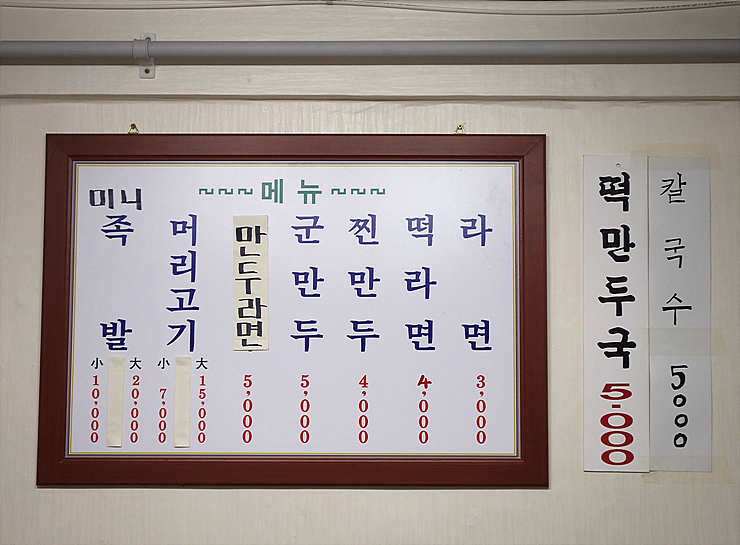 ~~~메뉴~~~
라면
3,000
떡라면
4,000
찐만두
4,000
군만두
5,000
만두라면
5,000
머리고기
大 15,000
小 7,000
미니
족발
大 20,000
小 10,000
떡만두국
5.000
칼국수
5000